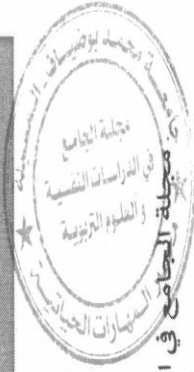 جامعة محمد بوضياف - المسيلة
مجلة الجامع
في الدراسات النفسية
و العلوم التربوية
المهارات الحياتية
مجلة الجامع في ا